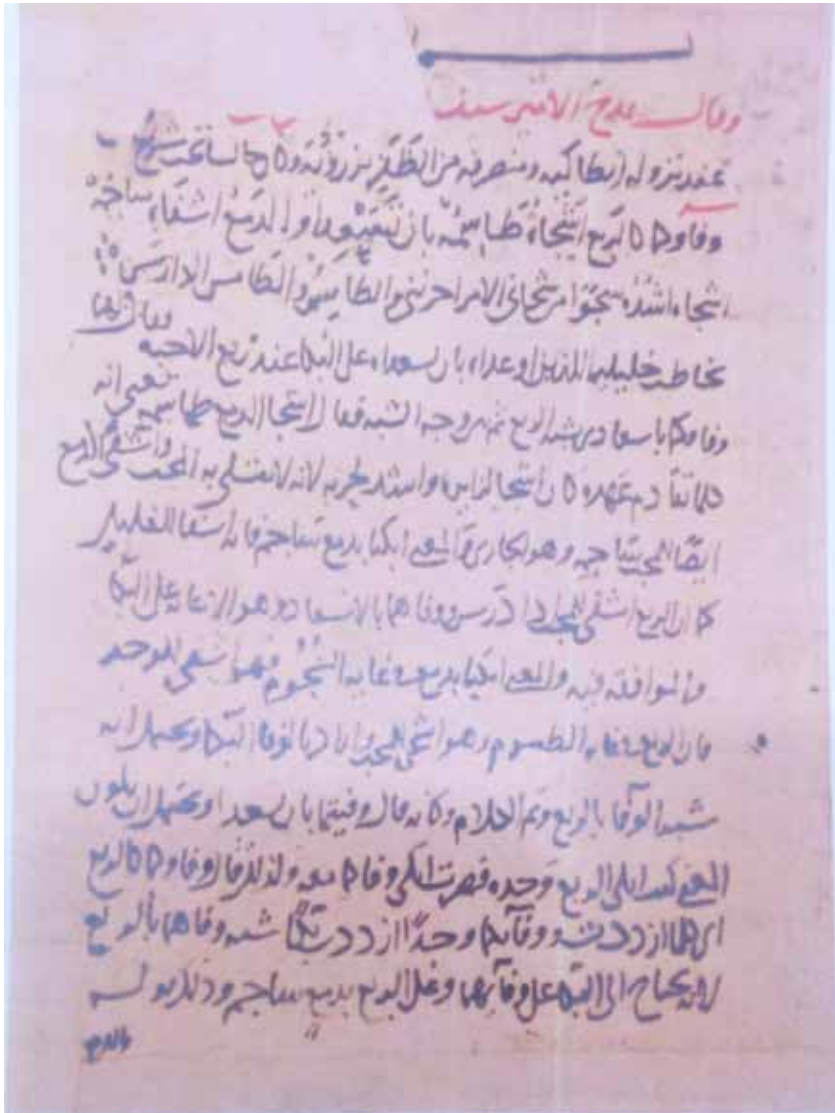 وقال يمدح الامير سيف
عند نزوله انطاكيه ومنصرفه من الظفر بزرويه وكان جالسا تحت
وفاوكما كالربع اشجاه طاسمه بان تسعدا والدمع اشفاه ساجمه
اشجاه اشده شجوا من شجاني الامر احزنني والطاسم والطامس الدارس
يخاطب خليليه اللذين اوعداه بان يسعداه على البكا عند ربع الاحبه فقال لهما
وفاوكما باسعادي شبه الربع ثم بين وجه الشبه فقال اشجا الربع طاسمه يعني انه
كلما تقادم عهده كان اشجا لزايره واشد لحزنه لانه لا يتسلى به المحب
واشفى الدمع
ايضا ساجمه وهو الجاري والمعنى ابكيا بدمع ساجم فانه اشفا للغليل
كما ان الربع اشفى للمحب اذا درس ووفاهما بالاسعاد وهو الاعانه على البكا
والموافقه فيه والمعنى ابكيا بدمع في غايه السجوم فهو اشفى للوجد
فان الربع في غايه الطسوم وهو اشجى للمحب واراد بالوفا البكا ويحتمل انه
شبه الوفا بالربع وتم الكلام وكانه قال وفيتما بان تسعدا ويحتمل ان يكون
المعنى كنت ابكي الربع وحده فصرت ابكي وفاكما معه ولذلك قال وفاوكما كالربع
اي كلما ازددت بوفائكما وجدا ازددت بكا شبه وفاهما بالربع
لانه يحتاج الى البكا على وفائهما وعلى الربع بدمع ساجم وذلك قوله
والدمع